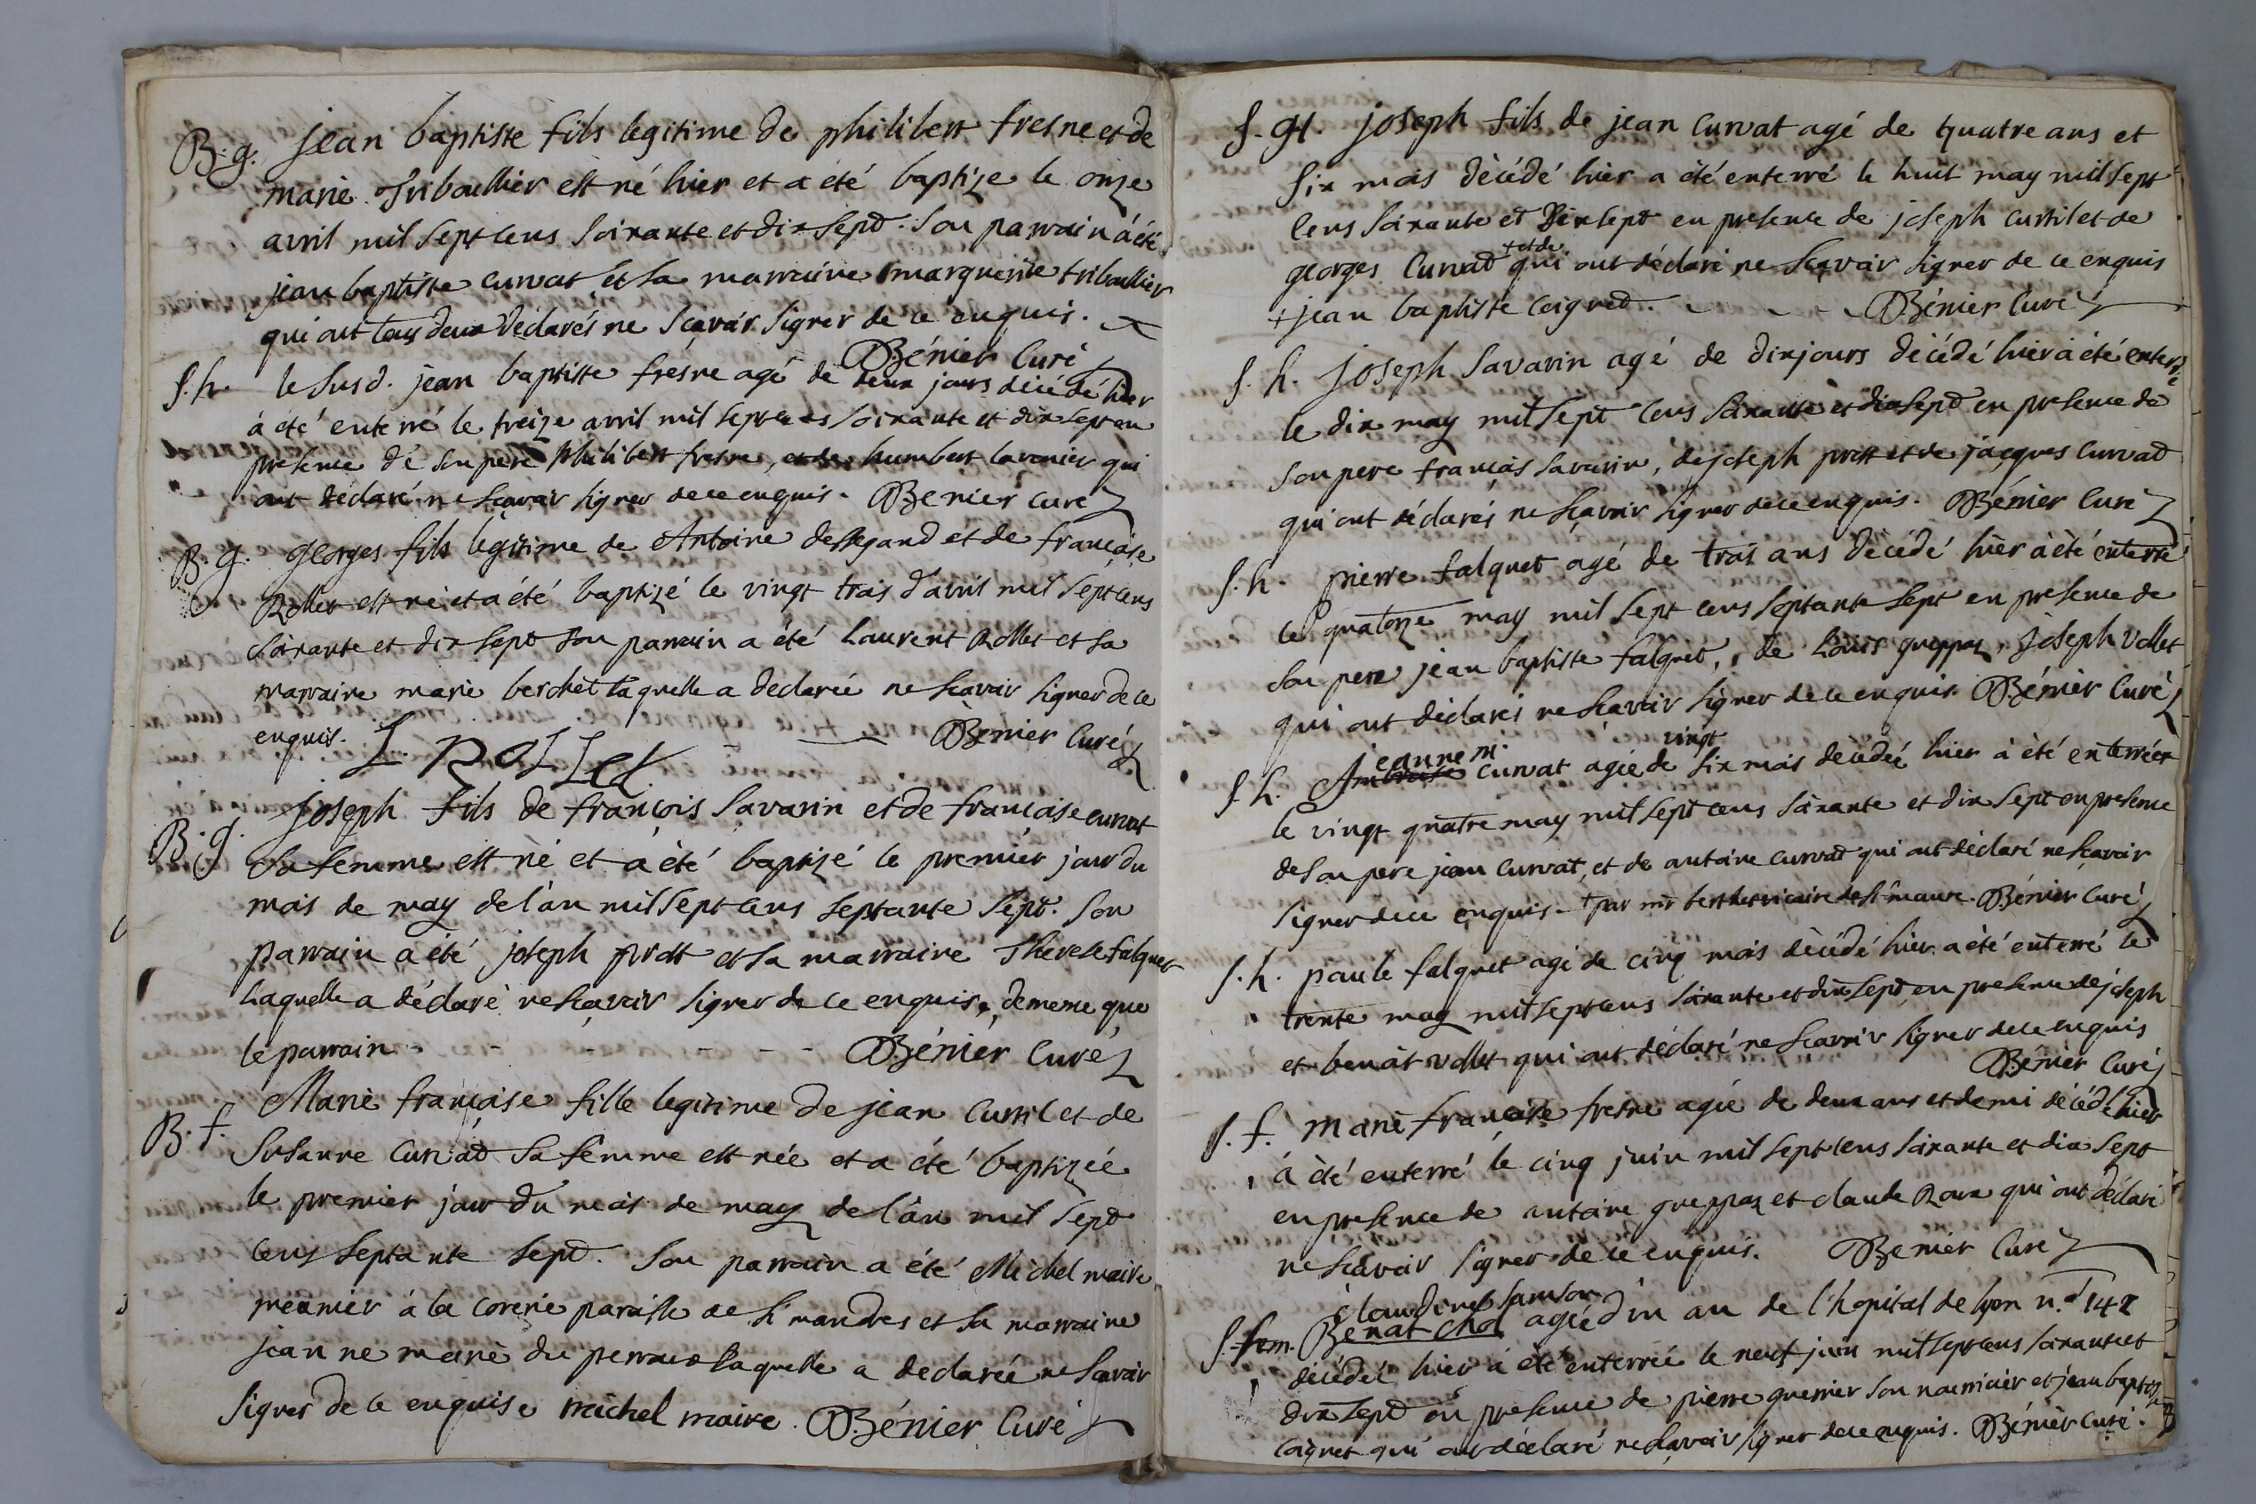 B. g. jean baptiste fils legitime de philibert fresne et de
marie Triboullier est né hier et a été baptize le onze
avril mil sept cens soixante et dix sept. Son parrain à été
jean baptiste curvat et sa marraine marguerite triboullier
qui ont tous deux déclarés ne scavoir signer de ce enquis.
Bénier Curé
S. h. le susd. jean baptiste fresne agé de deux jours décédé hier
à été enterré le treize avril mil sept cens soixante et dix sept en
presence de son pere philibert fresne, et de humbert lavenier qui
ont déclaré ne scavoir signer de ce enquis. Benier curé
B. g. Georges fils légitime de Antoine dessegand et de françoise
Rollet est né et a été baptizé le vingt trois d'avril mil sept cens
soixante et dix sept son parrain a été Laurent Rollet et sa
marraine marie berchet laquelle a declarée ne scavoir signer de ce
enquis. L. ROLLet Benier Curé
B. g. Joseph fils de françois Savarin et de françoise curvat
sa femme est né et a été baptizé le premier jour du
mois de may de l'an mil sept cens septante sept. Son
parrain a été joseph prost et sa marraine Therese falquet
Laquelle a déclaré ne scavoir signer de ce enquise, de meme que
le parrain - - - - Bénier Curé
B. f. Marie françoise fille legitime de jean Curtil et de
Susanne Curvad sa femme est née et a été baptizée
le premier jour du mois de may de l'an mil sept
cens septante sept. Son parrain a été Michel maire
meunier à la Corerie paroisse de St mandres et sa marraine
jeanne marie du perroux laquelle a declarée ne scavoir
signer de ce enquise michel maire. Bénier Curé
S. g. joseph fils de jean Curvat agé de quatre ans et
six mois décédé hier a été enterré le huit may mil sept
cens soixante et dix sept en presence de joseph curtil et de
georges Curvad + et de qui ont déclaré ne scavoir signer de ce enquis
+ jean baptiste coigned. Bénier Curé
S. h. Joseph Savarin agé de dix jours décédé hier à été enterré
le dix may mil sept cens soixante et dix sept en presence de
son pere françois savarin, de joseph prost et de jacques Curvad
qui ont déclarés ne scavoir signer de ce enquis. Bénier Curé
S. h. pierre falquet agé de trois ans décédé hier à été enterré
le quatorze may mil sept cens septante sept en presence de
son pere jean baptiste falqued, de Louis greppaz, Joseph vollet
qui ont déclarés ne scavoir signer de ce enquis Bénier Curé
jeanne m. vingt
S. h. Ambroise Curvat agée de six mois decédée hier à été enterrée+
le vingt quatre may mil sept cens soixante et dix sept en presence
de son pere jean Curvat, et de antoine curvad qui ont déclaré ne scavoir
signer de ce enquis - +par mr berthet vicaire de st maure. Bénier Curé
S. h. paule falquet agé de cinq mois décédé hier a été enterré le
trente may mil sept cens soixante et dix sept en presence de joseph
et benoit vollet qui ont déclaré ne scavoir signer de ce enquis
Bénier Curé
S. f. Marie françoise fresne agée de deux ans et demi décédé hier
à été enterré le cinq juin mil sept cens soixante et dix sept
en presence de antoine greppaz et claude Roux qui ont déclaré
ne scavoir signer de ce enquis. Benier Curé
Claudine Samson
S. fem. Benat chol agée d'un an de l'hopital de lyon n.° 148
décédée hier à été enterrée le neuf juin mil sept cens soixante et
dix sept en presence de pierre guerrier son nourricier et jean baptiste
coignet qui ont déclaré ne scavoir signer de ce enquis. Bénier Curé.